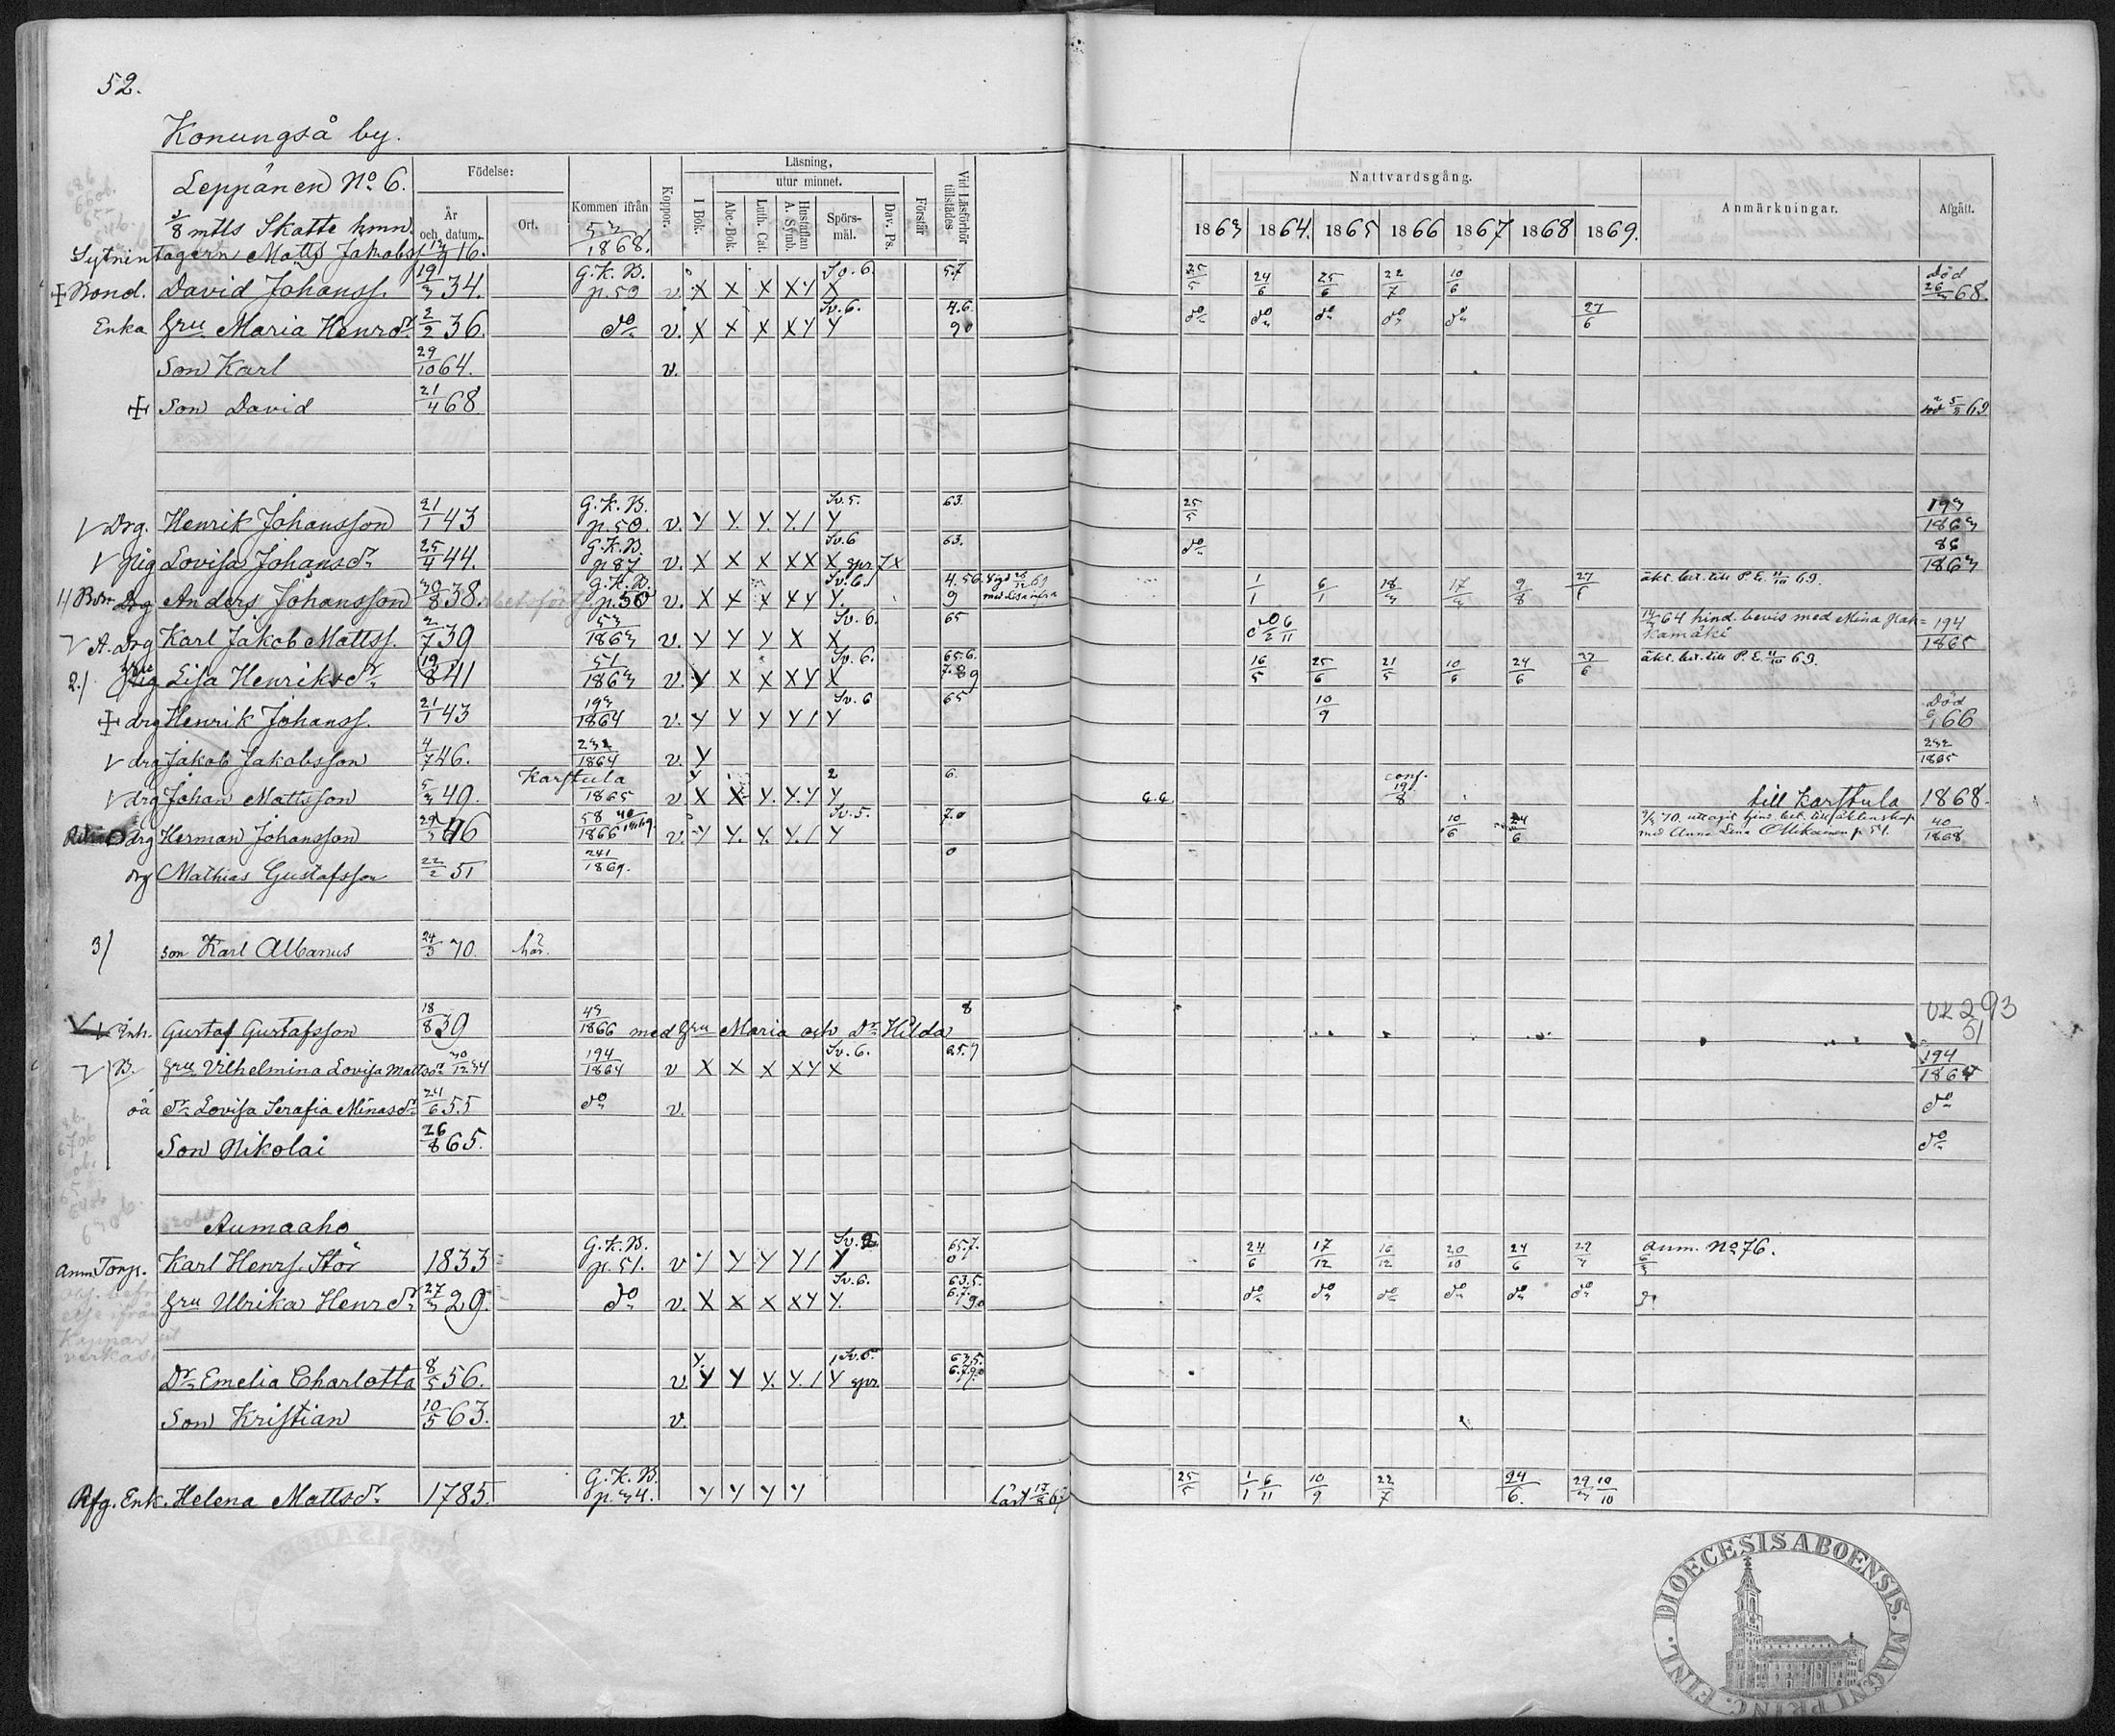 52.
Konungså by.
Leppänen No 6.
3/8 mtls Skatte hmn.
Födelse:
År och datum.
Ort.
Kommen ifrån
Koppor.
Läsning,
I Bok.
utur minnet.
Abc-Bok.
Luth. Cat.
Hustaflan A. Symb.
Spörsmål.
Dav. Ps.
Förstår
Vid Läsförhör tillstädes
Nattvardsgång.
1863 1864. 1865 1866 1867 1868 1869.
Anmärkningar.
Afgått.
Sytnintagern Matts Jakobss. 16. 53/1868.
+ Bond. David Johanss. 19/3 34. G.K.B. p.50 v. X X X XY X Sv.6. 5.7 25/5 24/6 25/6 22/7 10/6 död 26/3 68.
Enka Hru Maria Henrsdr 2/2 36. do v. X X X XY Y Sv.6. 4.6. 90 do do do do do 27/6
Son Karl 29/10 64. v.
+ Son David 21/4 68 död 5/2 69
V Drg. Henrik Johansson 21/1 43 G.K.B. p.50. v. Y Y. Y. Y./ Y. Sv.5. 63. 25/5 193/1863
V Pig Lovisa Johansdr 25/4 44. G.K.B. p87 v. X X X XX X spr 7x Sv.6 63. do 86/1863
1) Bon Drg Anders Johansson 30/8 38. G.K.B. p.50 v. X X X XY Y. Sv.6. 4.56. 9 vigd 26/12 69 med Lisa infra 1/1 6/1 18/3 17/3 9/8 27/6 äkt. bet. till P.E. 11/10 69.
V A. drg Karl Jakob Mattss. 2/7 39 53/1863 v. Y Y Y X X Sv.6. 65 do 6/11 14/3 64 hind. bevis med Mina Hakkamäki 194/1865
2.) Hru Pig Lisa Henriksdr 19/8 41 51/1863 v. Y X X XY X Sv.6. 65.6. 7.89 16/5 25/6 21/5 10/6 24/6 27/6 äkt. bet. till P.E. 11/10 69.
+ drg Henrik Johanss. 21/1 43 193/1864 v. Y Y Y Y/ Y Sv.6 65 10/9 Död 66
V drg Jakob Jakobsson 4/7 46. 232/1864 v. Y 232/1865
V drg Johan Mattsson 5/3 49. Karstula 1865 v X X Y. Y.Y Y 2 6. 6.6. conf. 19/8 till Karstula 1868.
drg Herman Johansson 29/3 46 58/1866 40/1869. v. Y Y. Y. Y./ Y Sv.5. 7.0 10/6 24/6 70. uttagit hind. bet. till äktenskap med Anna Lena Ollikainen p. 51. 40/1868
drg Mathias Gustafsson 22/2 51 241/1869. 0
3) son Karl Albanus 24/3 70. här.
V Inh. Gustaf Gustafsson 18/8 39 43/1866 med Hru Maria och Dr Hilda 8 UK 293 51
V B. Hru Vilhelmina Lovisa Mattsdr 30/12 34 194/1864 v X X X XY X Sv.6. 25.7 194/1867
oä dr Lovisa Serafia Minasdr 24/6 55 do v. do
Son Nikolai 26/8 65. do
Aumaaho
anm. Torp. Karl Henrs. Stör 1833 G.K.B. p.51. v Y Y Y Y/ Y Sv.2 65.7. 0 24/6 17/12 16/12 20/10 24/6 anm. No 76.
Hru Ulrika Henrsdr 27/3 29. do v. X X X XY Y. Sv.6. 63.5. 6.7. 90 do do do do do do
Dr Emelia Charlotta 8/5 56. v. Y Y Y. Y./ Y spr. 63.5. 6.7.9.0
Son Kristian 10/5 63. v.
Rfg. Enk. Helena Mattsdr 1785. G.K.B. p.34. Y Y Y Y läst 17/8 25/5 1/1 6/11 10/9 22/7 24/6. 29/3 10/10
DIOECESIS ABOENSIS. MAGNI PRINC. FINL.